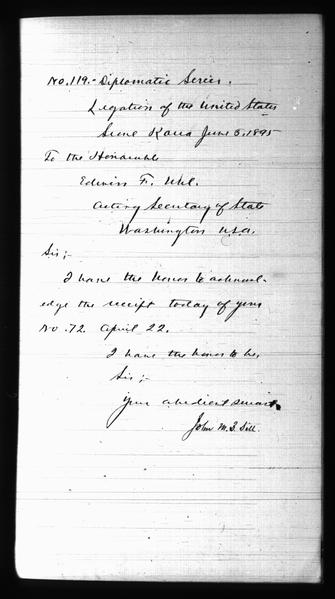 No. 119.- Diplomatic Series.
Legation of the United States
Seoul Korea June 5, 1895
To the Honorable
Edwin F. Uhl.
Acting Secretary of State
Washington U.S.A.
Sir;-
I have the honor to acknowl-
edge the receipt today of your
No. 72 April 22.
I have the honor to be,
Sir;-
Your obedient servant,
John M. B. Sill.